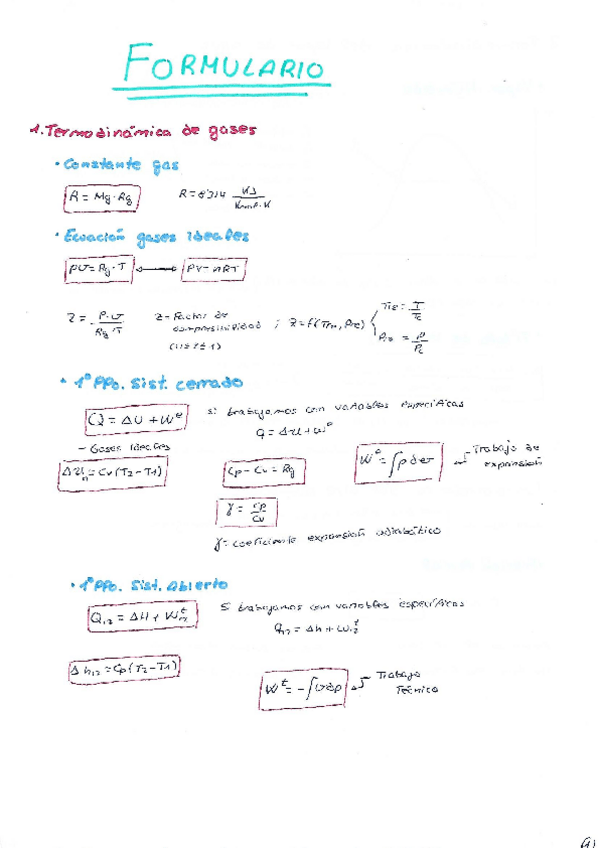 FORMULARIO
1. Termodinámica de gases
• Constante gas
R = Mg · Rg    R = 8'314 KJ / Kmol·K
• Ecuación gases ideales
pv = Rg · T ↔ PV = nRT
Z = P·v / Rg·T    Z = Factor de compresibilidad ; Z = f(Tr, Pr)    Tr = T / Tc
Pr = P / Pc
• 1º PPo. Sist. cerrado
Q = ΔU + Wᵉ    si trabajamos con variables específicas
q = Δu + wᵉ
- Gases ideales
= Cv (T2 - T1)    Cp - Cv = Rg    Wᵉ = ∫p dv    Trabajo de expansión
γ = Cp / Cv
γ = coeficiente expansión adiabático
• 1º PPo. Sist. Abierto
Q12 = ΔH + Wᵗ12    Si trabajamos con variables específicas
q12 = Δh + wᵗ12
Δh12 = Cp (T2 - T1)
Wᵗ = - ∫v dp    Trabajo Técnico